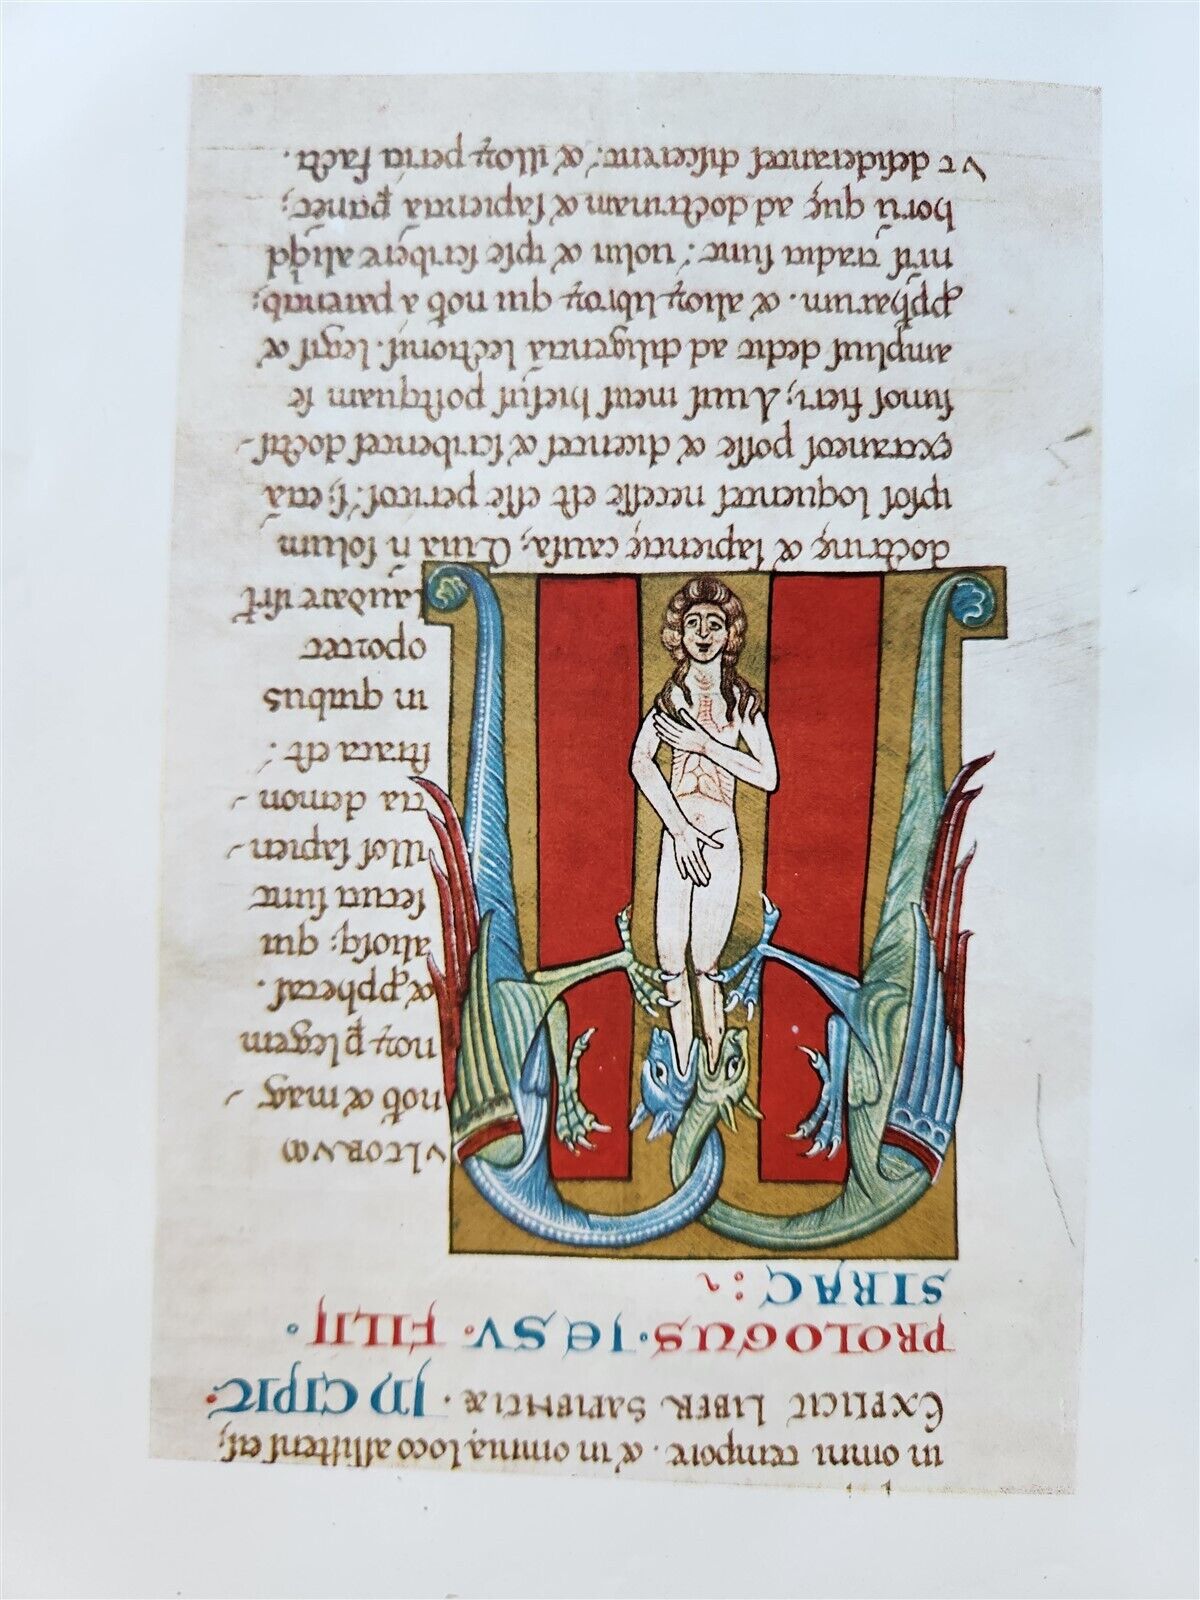 in omni tempore . & in omni loco aſſiſtenſ eiſ;
EXPLICIT LIBER SAPIENTIÆ . INCIPIT .
PROLOGUS . IESV . FILII .
SIRAC :~
M
VLTORVM
nob̄ & mag-
noꝝ ꝑ legem
& ꝓphetaſ .
alioſq; qui
ſecuti ſunt
illoſ ſapien-
tia demon-
ſtrata eſt :
in quibus
oportet
laudare iſrł
doctrinę & ſapientię cauſa; Quia n̄ ſolum
ipſoſ loquenteſ neceſſe eſt eſſe peritoſ : ſ; etiā
extraneoſ poſſe & dicenteſ & ſcribenteſ doctiſ-
ſimoſ fieri; Auuſ meuſ hieſuſ poſtquam ſe
ampliuſ dedit ad diligentiā lectioniſ . legiſ &
ꝓph̄arum . & alioꝝ libroꝝ qui nob̄ a parentib;
nr̄iſ traditi ſunt : uoluit & ipſe ſcribere aliqd
horū quę ad doctrinam & ſapientiā ꝑtinēt;
Vt deſideranteſ diſcerent : & illoꝝ periti facti .